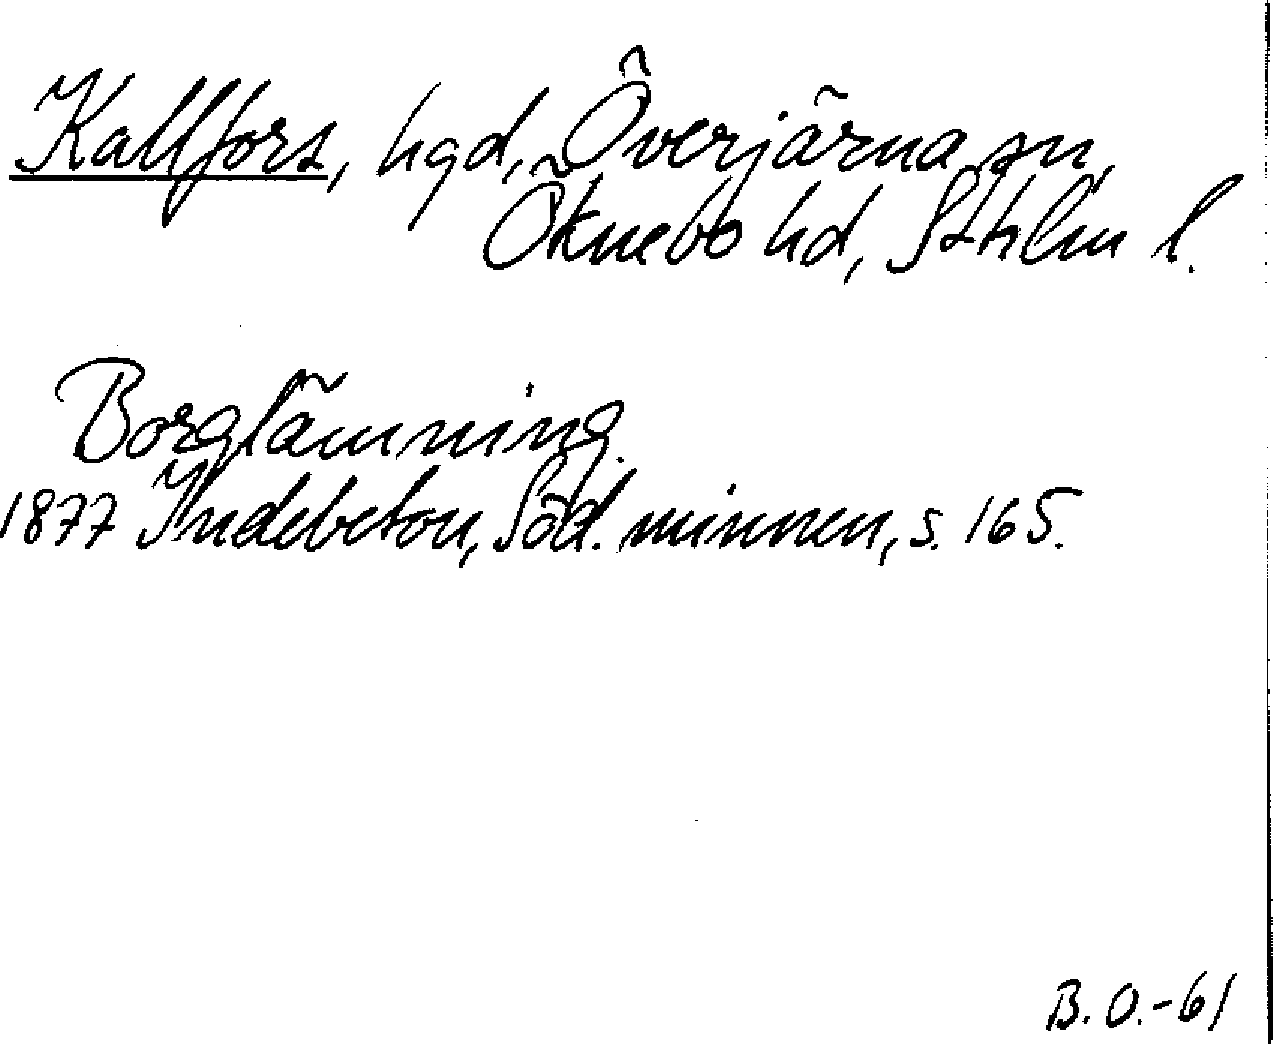 Kallfors, hgd, Överjärna sn,
Öknebo hd, Sthlm l.
Borglämning.
1877 Indebetou, Söd. minnen, s. 165.
B. O.-61